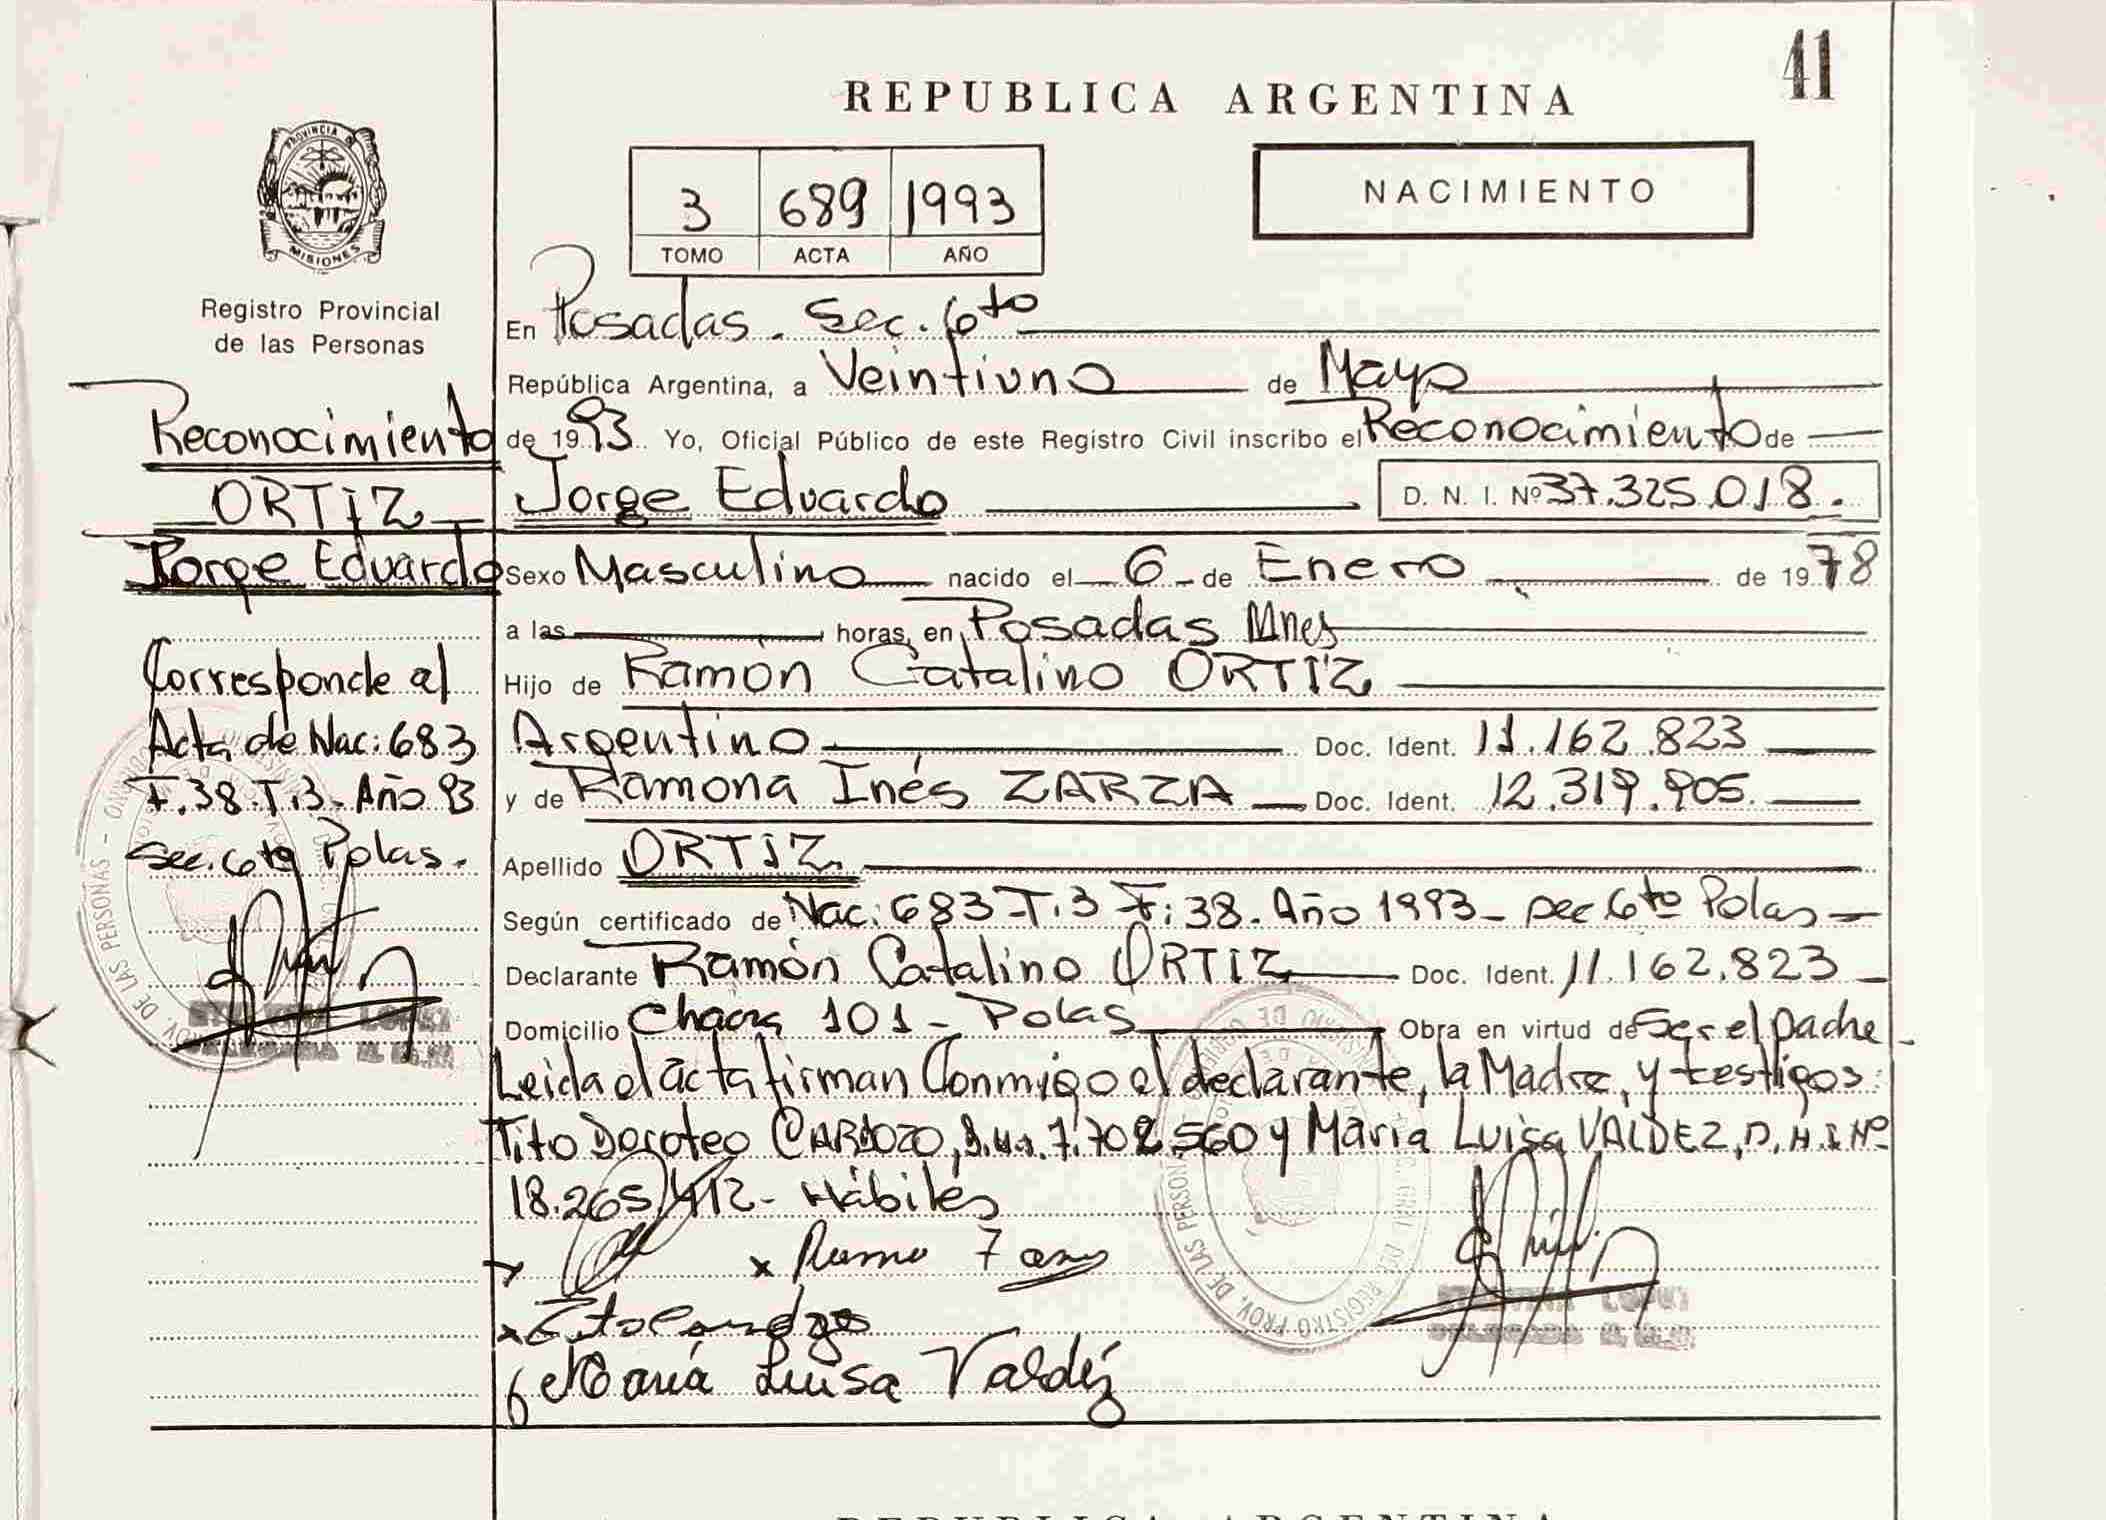 41
REPUBLICA ARGENTINA
NACIMIENTO
3 689 1993
TOMO ACTA AÑO
PROVINCIA DE
MISIONES
Registro Provincial
de las Personas
Reconocimiento
ORTIZ
Jorge Eduardo
Corresponde al
Acta de Nac: 683
F. 38. T. 3 - Año 93
Sec. 6ta Pdas.
En Posadas. Sec. 6to
República Argentina, a Veintiuno de Mayo
de 1993 Yo, Oficial Público de este Registro Civil inscribo el Reconocimiento de
Jorge Eduardo D. N. I. Nº 37.325.018.
Sexo Masculino nacido el 6 de Enero de 1978
a las horas, en Posadas Mnes
Hijo de Ramón Catalino ORTIZ
Argentino Doc. Ident. 11.162.823
y de Ramona Inés ZARZA Doc. Ident. 12.319.905
Apellido ORTIZ.
Según certificado de Nac: 683 - T. 3 F: 38 - Año 1993 - Sec 6to Pdas
Declarante Ramón Catalino ORTIZ Doc. Ident. 11.162.823
Domicilio Chacra 101 - Pdas Obra en virtud de Ser el padre
Leida el acta firman Conmigo el declarante, la Madre, y testigos:
Tito Doroteo CARDOZO, 7.702.560 y María Luisa VALDEZ, D.N.I. Nº
18.265.412 - Hábiles
María Luisa Valdéz
REPUBLICA ARGENTINA